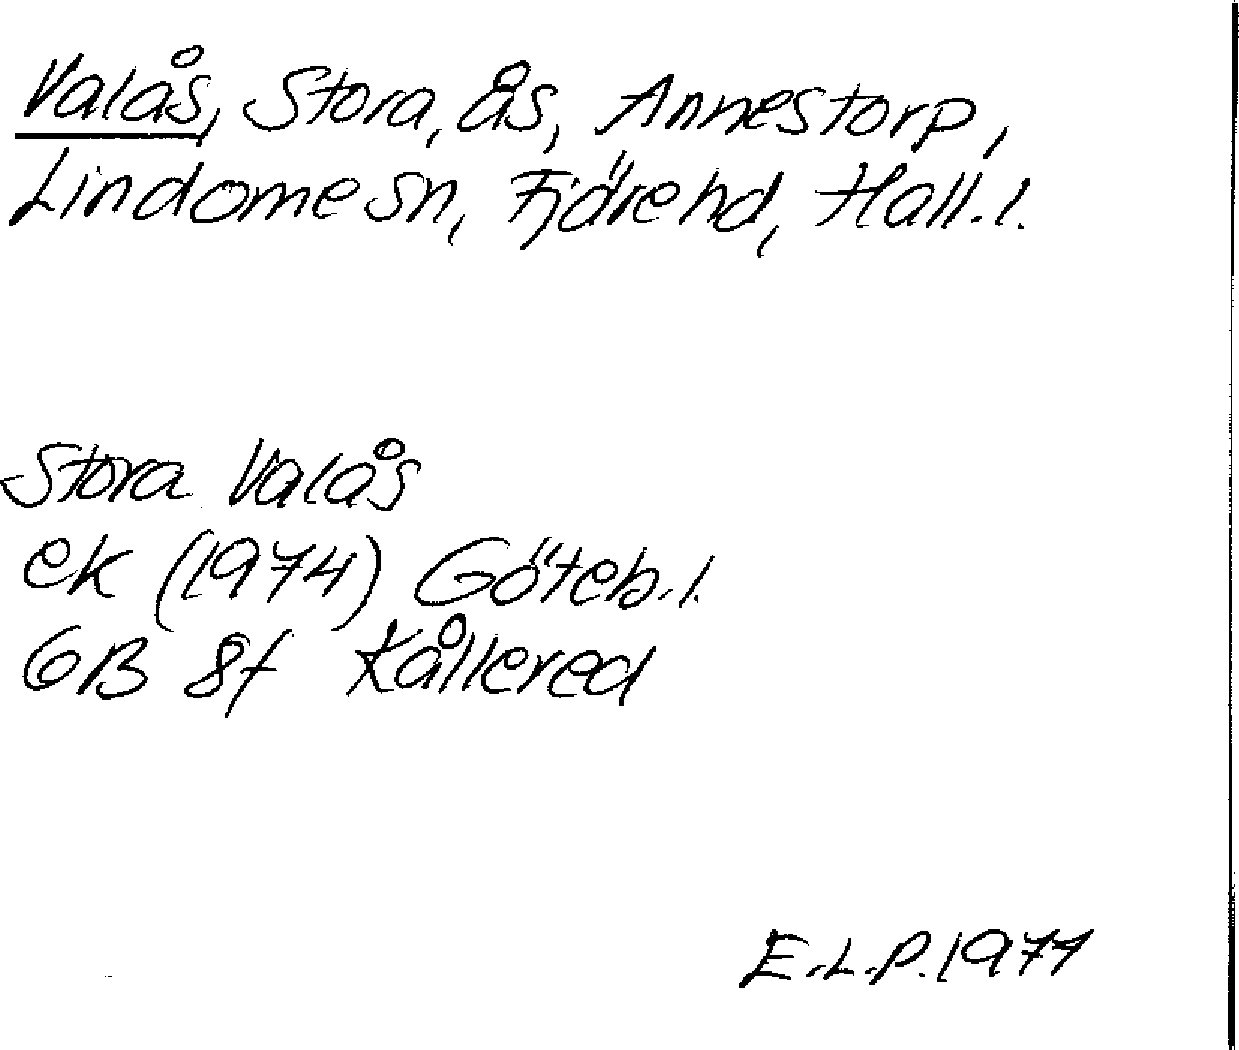 Valås, Stora, ås, Annestorp,
Lindome sn, Fjäre hd, Hall. l.
Stora Valås
ek (1974) Göteb. l.
6B 8f Kållered
E.L.P. 1977